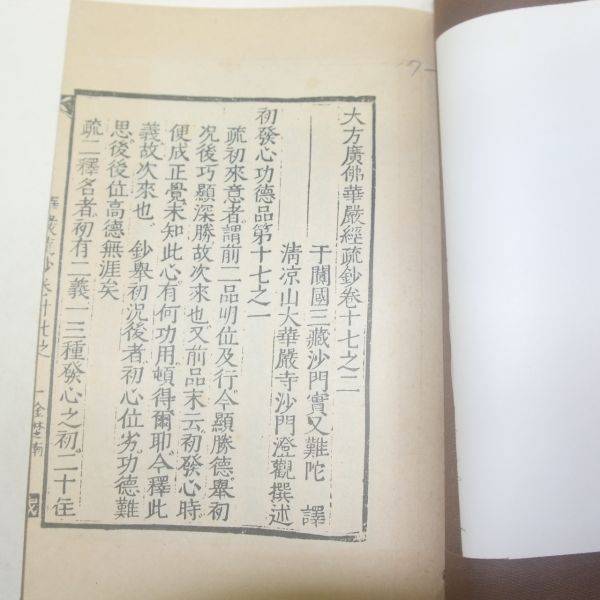 大方廣佛華嚴經疏鈔卷十七之二
于闐國三藏沙門實叉難陀 譯
淸凉山大華嚴寺沙門澄觀撰述
初發心功德品第十七之一
疏初來意者。謂前二品明位及行。今顯勝德。舉初
况後巧顯深勝故次來也。又前品末云。初發心時
便成正覺。未知此心有何功用。頓得爾耶。今釋此
義故次來也。 鈔舉初況後者。初心位劣。功德難
思。後後位高德無涯矣
疏二釋名者。初有二義。一三種發心之初。二十住
華嚴疏鈔卷十七之 一